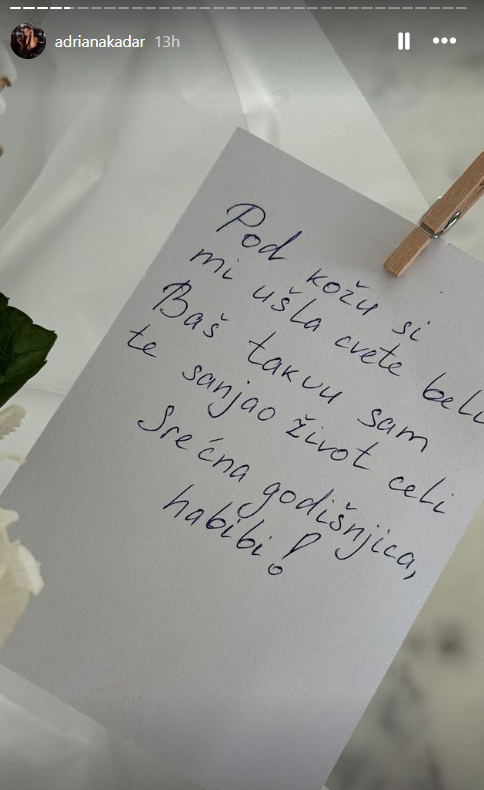 adrianakadar 13h
Pod kožu si
mi ušla cvete beli
Baš takvu sam
te sanjao život celi
Srećna godišnjica,
habibi!